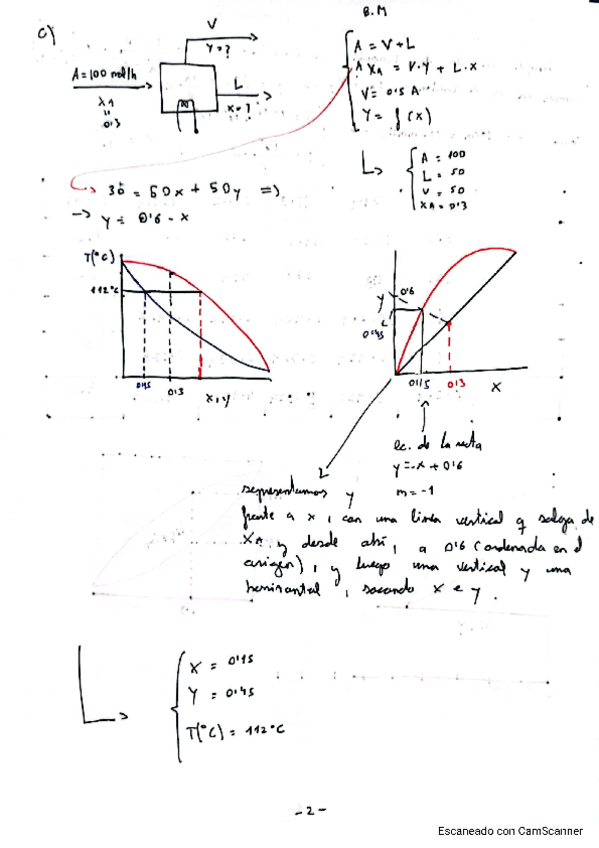 c)
B.M
V
Y=?
A = 100 mol/h
XA
"
0'3
L
X=?
A = V+L
A XA = V·Y + L·X
V = 0'5 A
Y = f(X)
A = 100
L = 50
V = 50
XA = 0'3
30 = 50x + 50y =>
-> y = 0'6 - x
T(°C)
112°C
0'15
0'3
X,Y
Y
0'6
0'45
0'15
0'3
X
ec. de la recta
y = -x + 0'6
m = -1
representamos y
frente a x, con una línea vertical q salga de
XA y desde ahí, a 0'6 (ordenada en el
origen), y luego una vertical y una
horizontal, sacando X e Y.
X = 0'15
Y = 0'45
T(°C) = 112°C
-2-
Escaneado con CamScanner